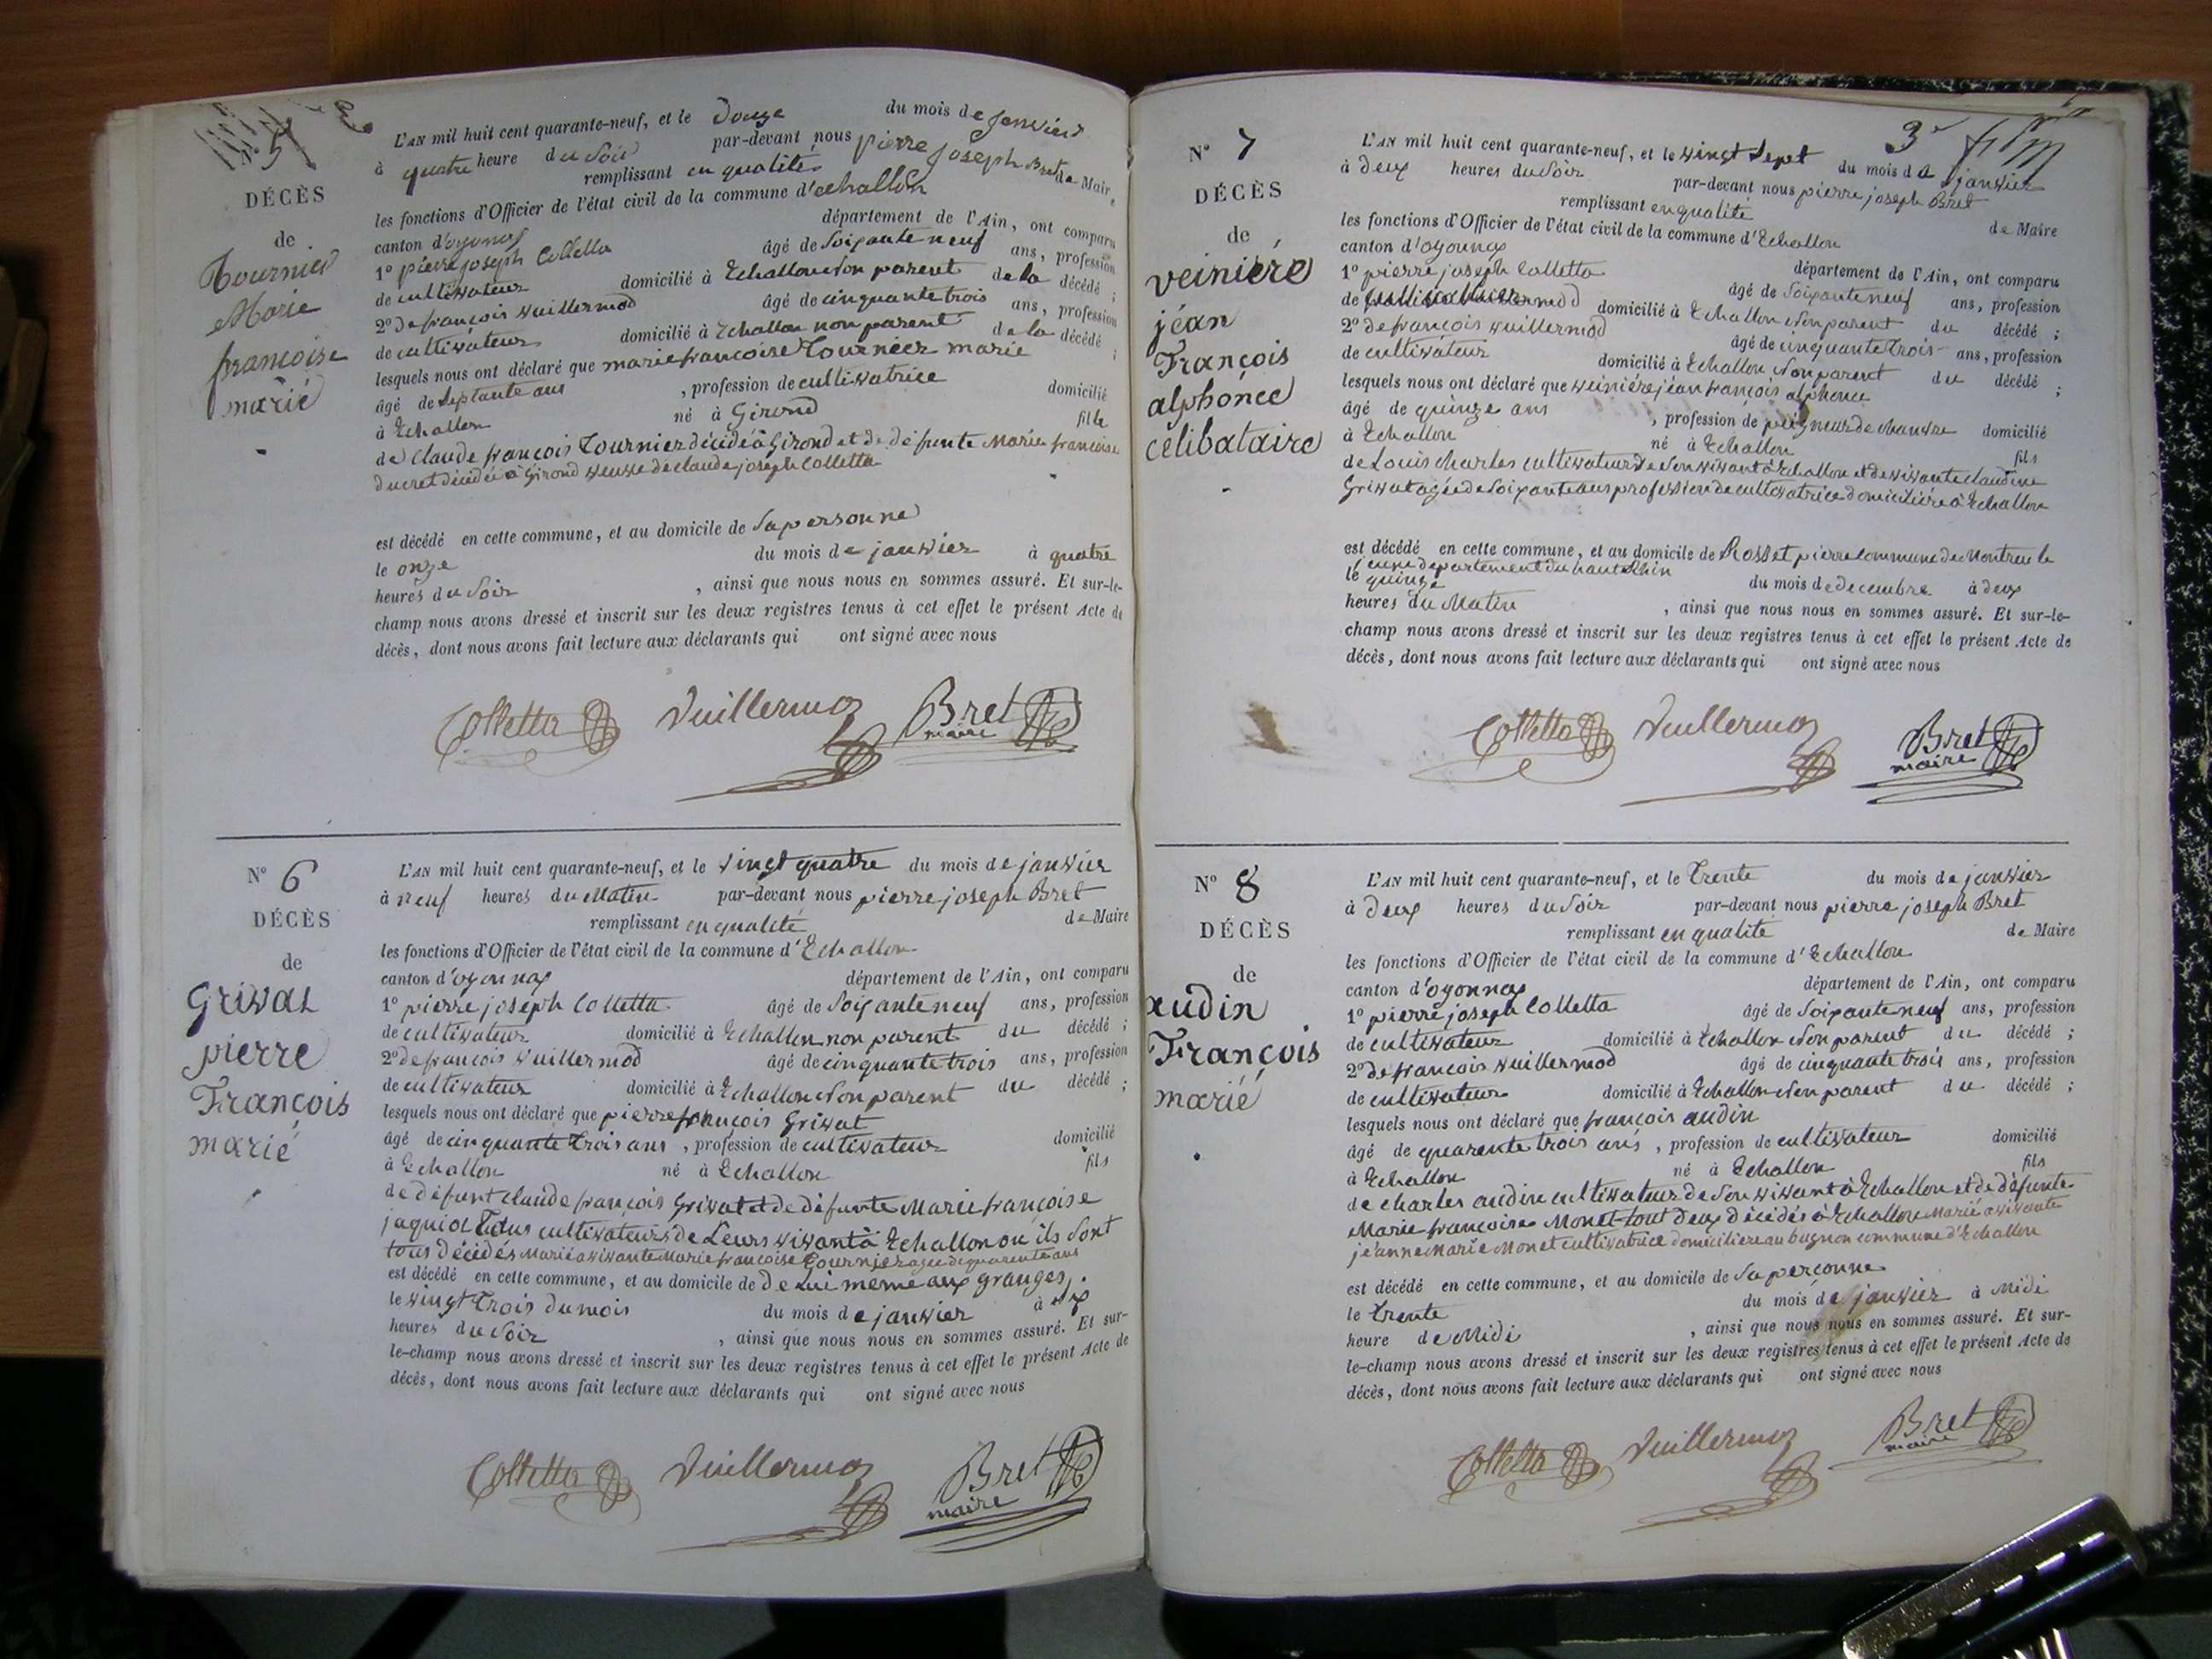 5
DÉCÈS
de
Tournier
Marie
francoise
marié
L'AN mil huit cent quarante-neuf, et le Douze du mois de Janvier
à quatre heure du Soir par-devant nous pierre Joseph Bret
remplissant en qualité de Maire
les fonctions d'Officier de l'état civil de la commune d'echallon
canton d'oyonnax département de l'Ain, ont comparu
1° pierre joseph Colletta âgé de Soixante neuf ans, profession
de cultivateur domicilié à Echallon Non parent de la décédé ;
2° de francois Vuillermod âgé de cinquante trois ans, profession
de cultivateur domicilié à Echallon non parent de la décédé ;
lesquels nous ont déclaré que marie francoise Tournier marie
âgé de Septante ans , profession de cultivatrice domicilié
à Echallon né à Girond fille
de Claude francois Tournier décidé à Girond et de défunte Marie francoise
ducret décidée à Girond veuve de claude joseph Colletta
est décédé en cette commune, et au domicile de Sa personne
le onze du mois de janvier à quatre
heures du Soir , ainsi que nous nous en sommes assuré. Et sur-le-
champ nous avons dressé et inscrit sur les deux registres tenus à cet effet le présent Acte de
décès, dont nous avons fait lecture aux déclarants qui ont signé avec nous
Colletta Vuillermoz Bret
maire
N° 6
DÉCÈS
de
Grivat
pierre
François
marié
L'AN mil huit cent quarante-neuf, et le vingt quatre du mois de janvier
à neuf heures du Matin par-devant nous pierre joseph Bret
remplissant en qualité de Maire
les fonctions d'Officier de l'état civil de la commune d'Echallon
canton d'oyonnax département de l'Ain, ont comparu
1° pierre joseph Colletta âgé de Soixante neuf ans, profession
de cultivateur domicilié à Echallon non parent du décédé ;
2° de francois Vuillermod âgé de cinquante trois ans, profession
de cultivateur domicilié à Echallon Non parent du décédé ;
lesquels nous ont déclaré que pierre françois Grivat
âgé de cinquante trois ans , profession de cultivateur domicilié
à Echallon né à Echallon fils
de défunt claude françois Grivat et de défunte Marie françoise
cultivateurs de Leurs vivant à Echallon ou ils sont
tous décédés Marié a vivante Marie francoise Tournier agée de quarante ans
est décédé en cette commune, et au domicile de De Lui meme aux granges
le vingt Trois du mois du mois de janvier à six
heures du Soir , ainsi que nous nous en sommes assuré. Et sur-
le-champ nous avons dressé et inscrit sur les deux registres tenus à cet effet le présent Acte de
décès, dont nous avons fait lecture aux déclarants qui ont signé avec nous
Colletta Vuillermoz Bret
maire
3
N° 7
DÉCÈS
de
veinière
jéan
François
alphonce
celibataire
L'AN mil huit cent quarante-neuf, et le vingt Sept du mois de janvier
à deux heures du Soir par-devant nous pierre joseph Bret
remplissant en qualité de Maire
les fonctions d'Officier de l'état civil de la commune d'Echallon
canton d'oyonnax département de l'Ain, ont comparu
1° pierre joseph Colletta âgé de Soixante neuf ans, profession
de domicilié à Echallon Non parent du décédé ;
2° de francois Vuillermod âgé de cinquante trois ans, profession
de cultivateur domicilié à Echallon Non parent du décédé ;
lesquels nous ont déclaré que veinière jéan françois alphonce
âgé de quinze ans , profession de peigneur de chanvre domicilié
à Echallon né à Echallon fils
de Louis charles cultivateur de Son vivant à Echallon et de vivante claudine
Grivat agée de Soixante ans profession de cultivatrice domiciliée à Echallon
est décédé en cette commune, et au domicile de Rosset pierre commune de Montreu le
jeune departement du haut Rhin
le quinze du mois de decembre à deux
heures du Matin , ainsi que nous nous en sommes assuré. Et sur-le-
champ nous avons dressé et inscrit sur les deux registres tenus à cet effet le présent Acte de
décès, dont nous avons fait lecture aux déclarants qui ont signé avec nous
Colletta Vuillermoz Bret
maire
N° 8
DÉCÈS
de
audin
François
marié
L'AN mil huit cent quarante-neuf, et le Trente du mois de janvier
à deux heures du Soir par-devant nous pierre joseph Bret
remplissant en qualité de Maire
les fonctions d'Officier de l'état civil de la commune d'Echallon
canton d'oyonnax département de l'Ain, ont comparu
1° pierre joseph Colletta âgé de Soixante neuf ans, profession
de cultivateur domicilié à Echallon Non parent du décédé ;
2° de francois Vuillermod âgé de cinquante trois ans, profession
de cultivateur domicilié à Echallon Non parent du décédé ;
lesquels nous ont déclaré que françois audin
âgé de quarente trois ans , profession de cultivateur domicilié
à Echallon né à Echallon fils
de charles audin cultivateur de Son vivant à Echallon et de défunte
Marie francoise Monet tout deux décidés à Echallon Marié a vivante
jéanne Marie Monet cultivatrice domiciliere au bugnon commune d'Echallon
est décédé en cette commune, et au domicile de Sa perconne
le Trente du mois de janvier à Midi
heure de Midi , ainsi que nous nous en sommes assuré. Et sur-
le-champ nous avons dressé et inscrit sur les deux registres tenus à cet effet le présent Acte de
décès, dont nous avons fait lecture aux déclarants qui ont signé avec nous
Colletta Vuillermoz Bret
maire